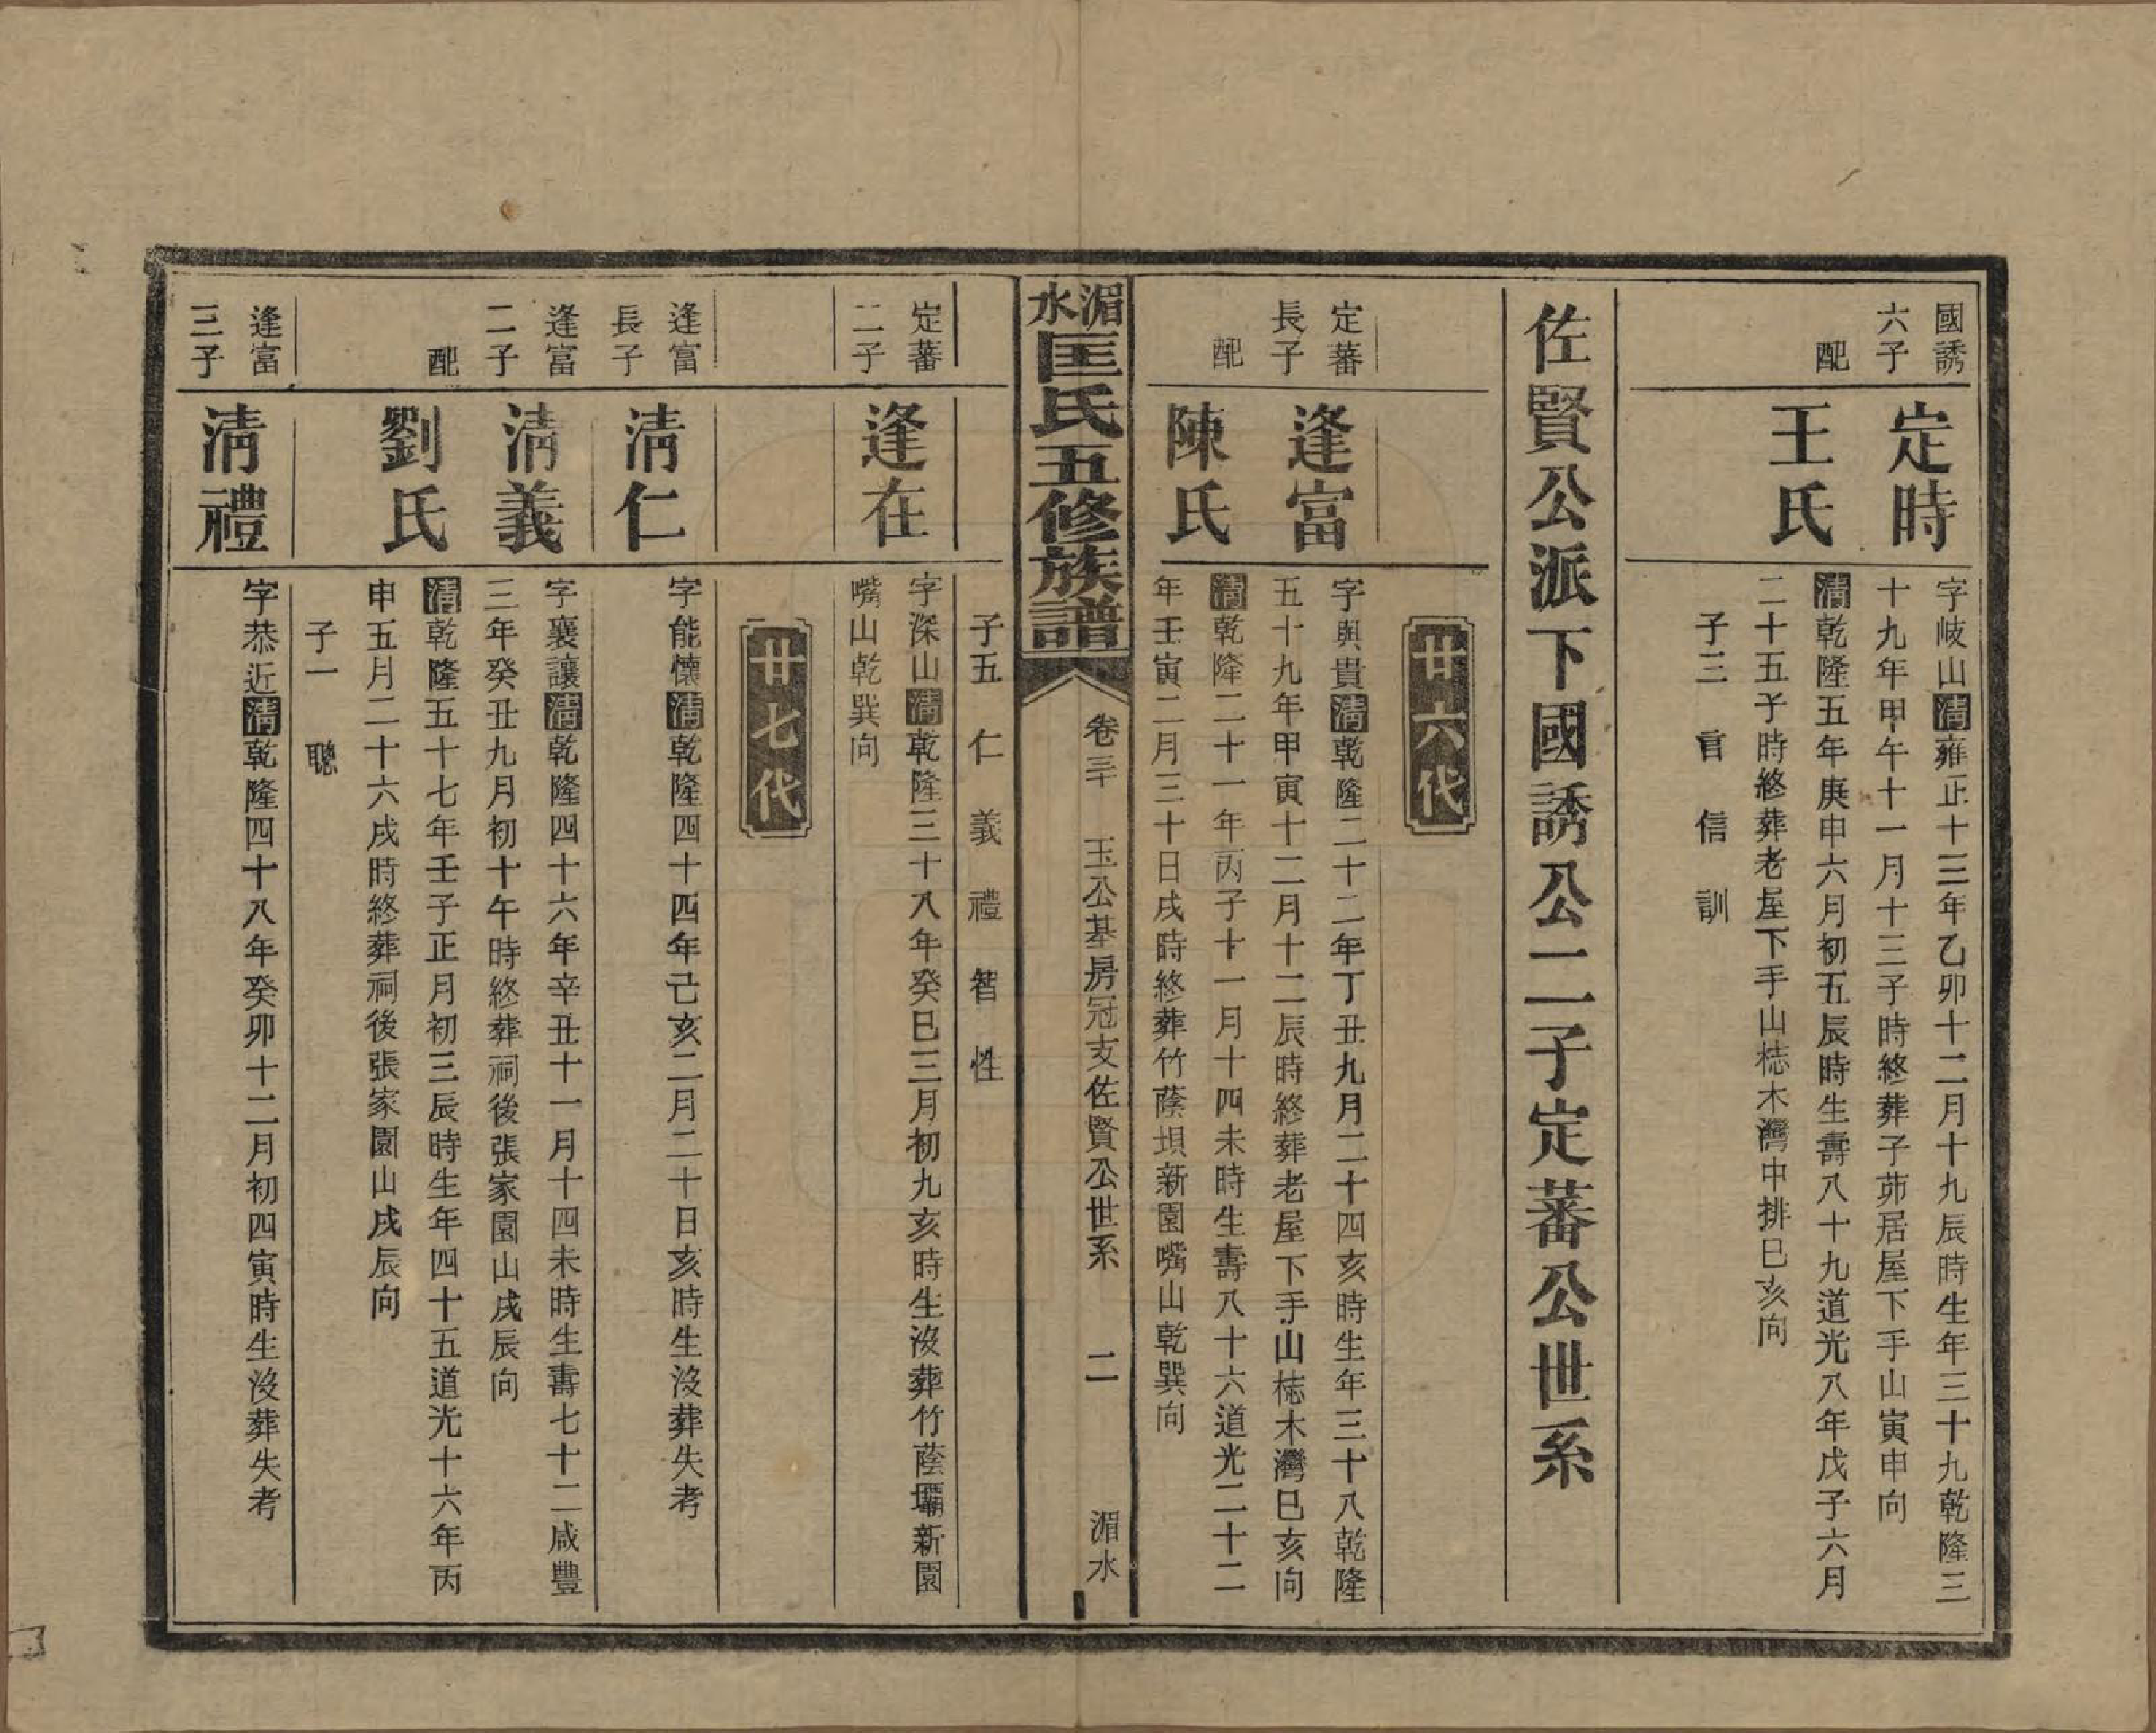 國誘
六子
定時
字岐山清雍正十三年乙卯十二月十九辰時生年三十九乾隆三
十九年甲午十一月十三子時終葬子茆居屋下手山寅申向
配
王氏
清乾隆五年庚申六月初五辰時生壽八十九道光八年戊子六月
二十五子時終葬老屋下手山梽木灣中排巳亥向
子三 言 信 訓
佐賢公派下國誘公二子定蕃公世系
廿六代
定蕃
長子
逢富
字與貴清乾隆二十二年丁丑九月二十四亥時生年三十八乾隆
五十九年甲寅十二月十二辰時終葬老屋下手山梽木灣巳亥向
配
陳氏
清乾隆二十一年丙子十一月十四未時生壽八十六道光二十二
年壬寅二月三十日戌時終葬竹蔭坝新園嘴山乾巽向
湄水匡氏五修族譜
卷三
玉公基房冠支佐賢公世系
二
湄水
子五 仁 義 禮 智 性
定蕃
二子
逢在
字深山清乾隆三十八年癸巳三月初九亥時生沒葬竹蔭壩新園
嘴山乾巽向
廿七代
逢富
長子
清仁
字能懷清乾隆四十四年己亥二月二十日亥時生沒葬失考
逢富
二子
清義
字襄讓清乾隆四十六年辛丑十一月十四未時生壽七十二咸豐
三年癸丑九月初十午時終葬祠後張家園山戌辰向
配
劉氏
清乾隆五十七年壬子正月初三辰時生年四十五道光十六年丙
申五月二十六戌時終葬祠後張家園山戌辰向
子一 聰
逢富
三子
清禮
字恭近清乾隆四十八年癸卯十二月初四寅時生沒葬失考